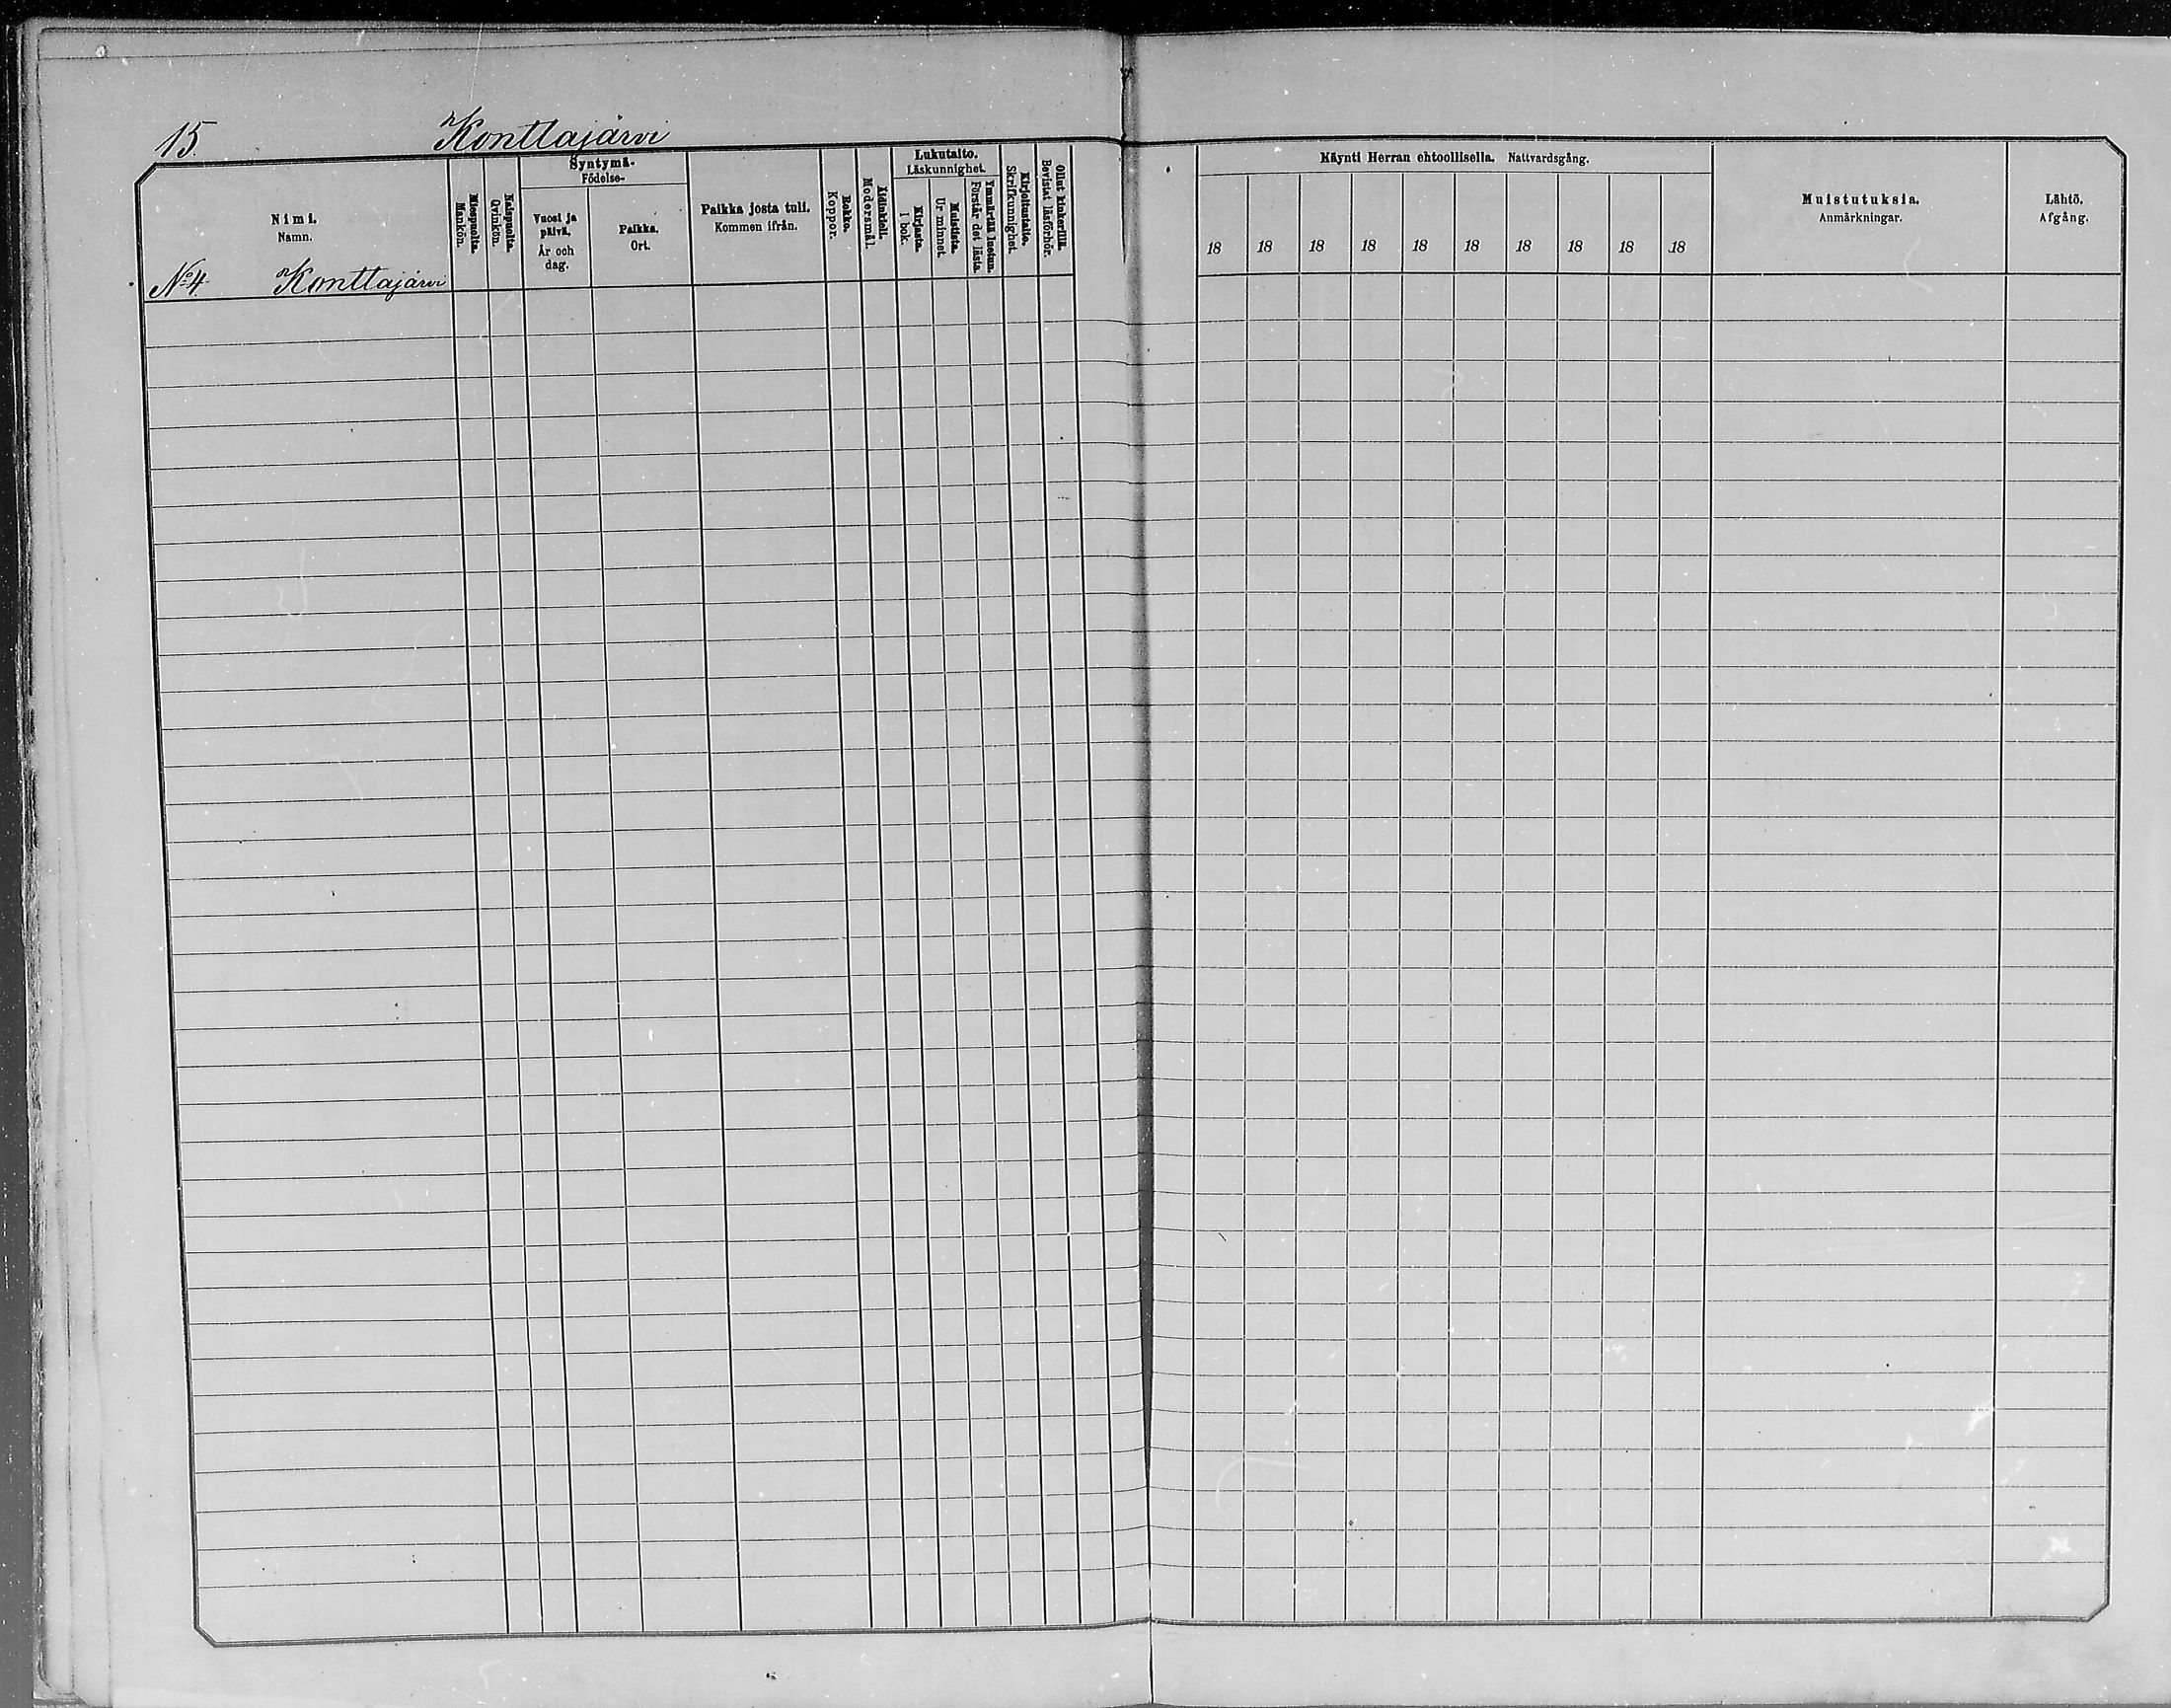 15. Konttajärvi
Nimi.
Namn.
Miespuolta.
Mankön.
Naispuolta.
Qvinkön.
Syntymä-
Födelse-
Vuosi ja
päivä.
År och
dag.
Paikka.
Ort.
Paikka josta tuli.
Kommen ifrån.
Rokko.
Koppor.
Äidinkieli.
Modersmål.
Lukutaito.
Läskunnighet.
Kirjasta.
I bok.
Muistista.
Ur minnet.
Ymmärtää luetun.
Förstår det lästa.
Kirjoitustaito.
Skrifkunnighet.
Ollut kinkerillä.
Bevistat läsförhör.
No 4. Konttajärvi
Käynti Herran ehtoollisella. Nattvardsgång.
18 18 18 18 18 18 18 18 18 18
Muistutuksia.
Anmärkningar.
Lähtö.
Afgång.